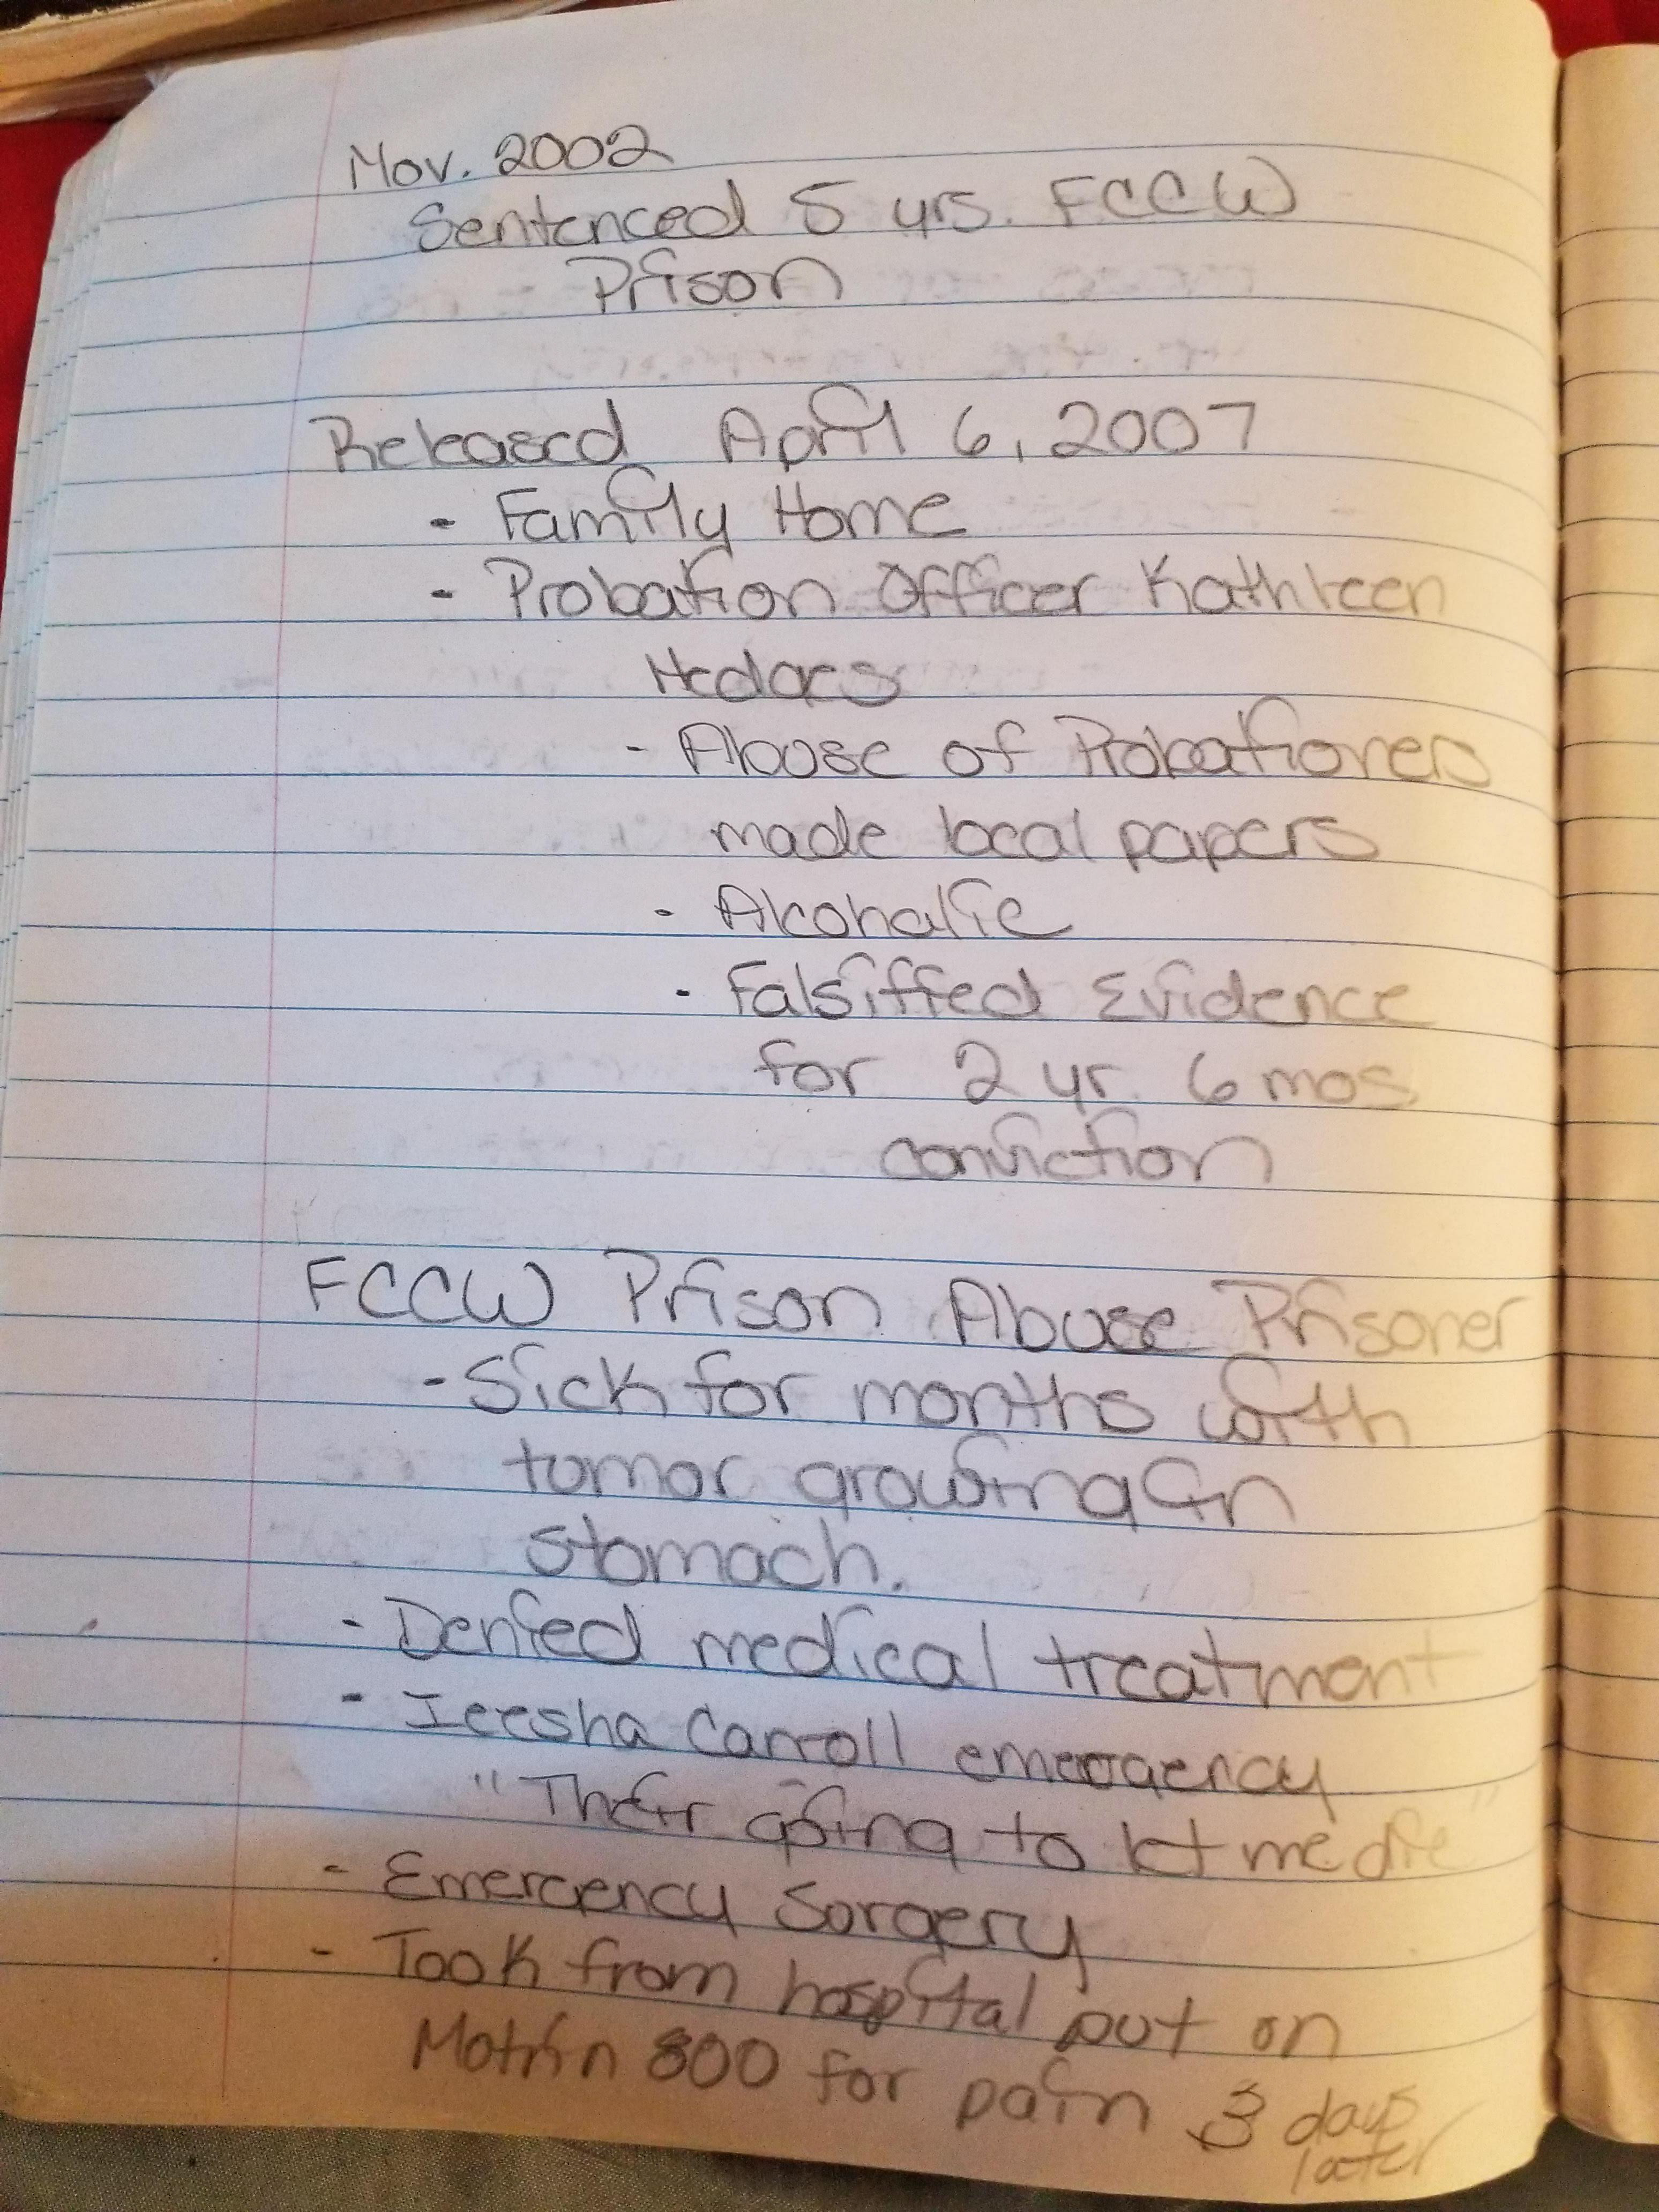 Nov. 2002
Sentenced 5 yrs. FCCW
Prison
Released April 6, 2007
- Family Home
- Probation Officer Kathleen
Hedges
- Abuse of Probationers
made local papers
- Alcoholic
- Falsified Evidence
for 2 yr. 6 mos.
conviction
FCCW Prison Abuse Prisoner
- Sick for months with
tumor growing in
stomach.
- Denied medical treatment
- Ieesha Carroll emergency
"Their going to let me die"
- Emergency Surgery
- Took from hospital put on
Motrin 800 for pain 3 days
later